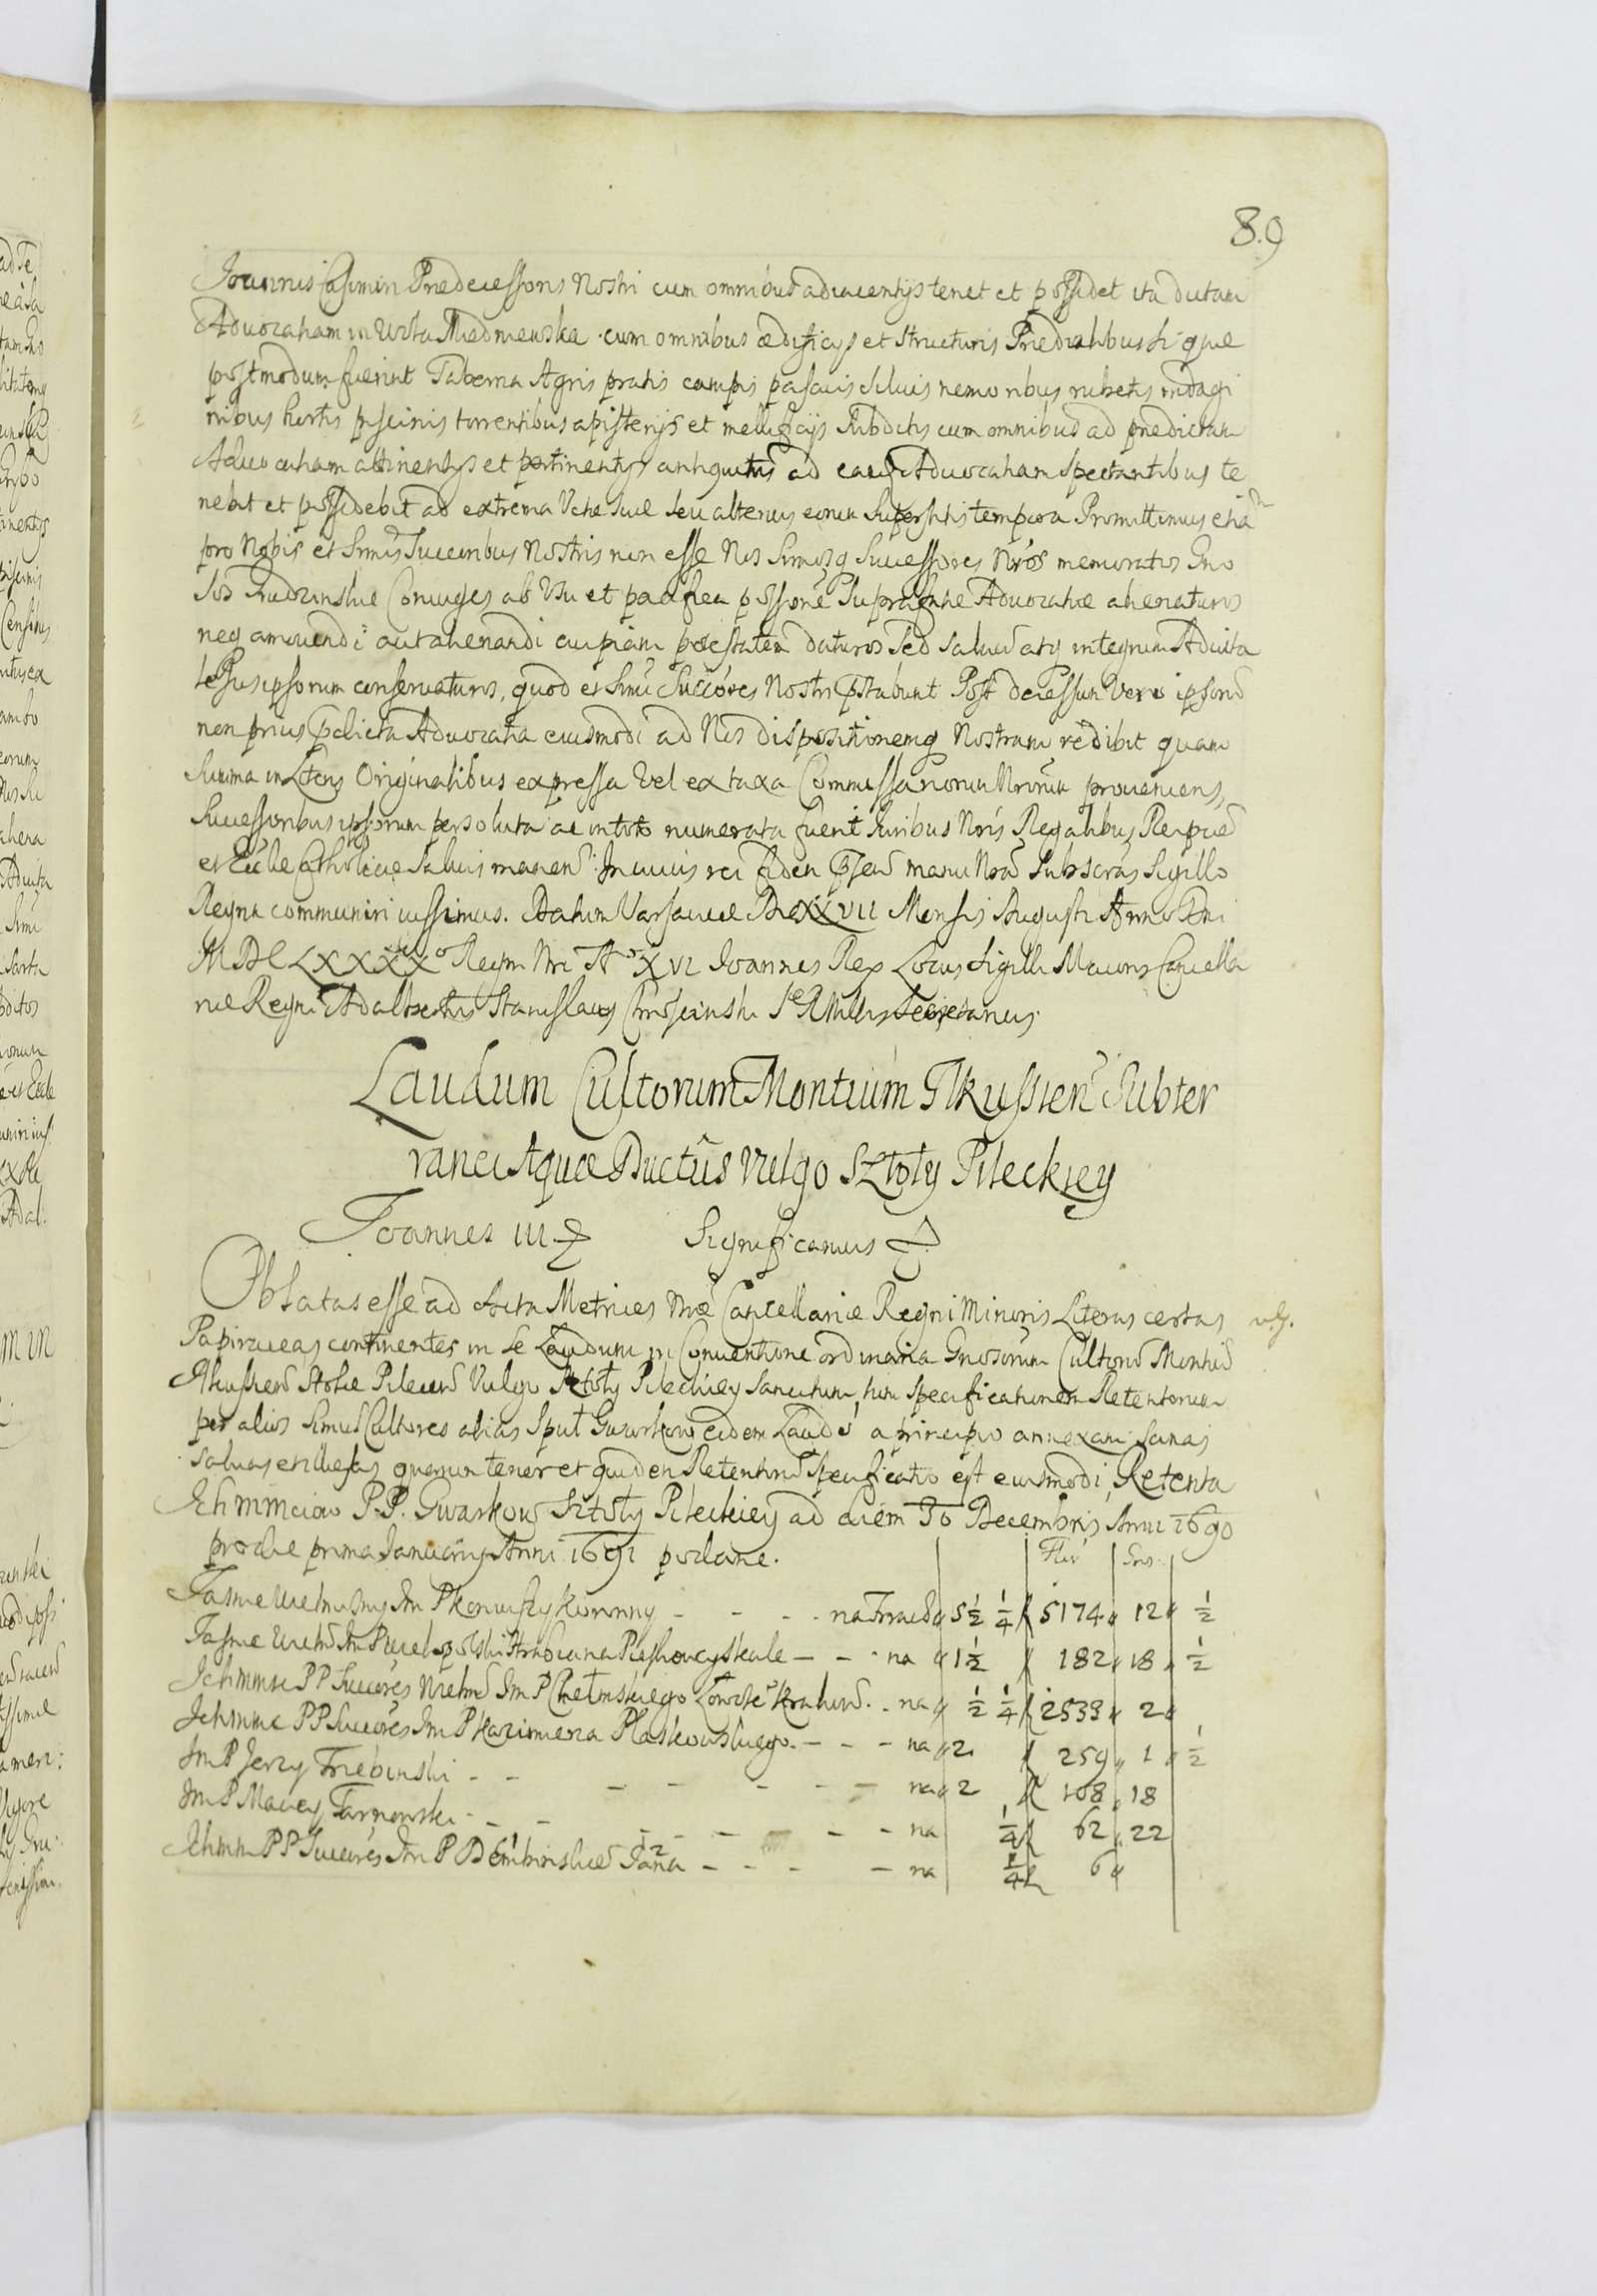 89
Joannis Casimiri Prædecessoris Nostri cum omnibus adiacentijs tenet et possidet ita dictam
Aduocatiam in Wola Miedniewska cum omnibus ædificijs et structuris Prædialibus si quæ
postmodum fuerint Taberna Agris pratis campis pascuis siluis nemoribus rubetis indagi
nibus hortis piscinis torrentibus apisterijs et mellificijs subditis cum omnibus ad prædictam
Aduocatiam attinentijs et pertinentijs antiquitus ad eandem Aduocatiam spectantibus te
nebit et possidebit ad extrema Vitæ suæ seu alterius eorum superstitis tempora Promittimus etiam
pro Nobis et Srmis Succribus Nostris non esse Nos Srmosq Successores Nros memoratos Gno
sos Coniuges ab Vsu et pacifica possone suprascriptæ Aduocatiæ alienaturos
neq amouendi aut alienandi cuipiam potestatem daturos sed saluum atq integrum Aduita
le Jus ipsorum conseruaturos, quod et Srmi Succores Nostri pstabunt Post decessum Vero ipsorum
non prius pdicta Aduocatia eiusmodi ad Nos dispositionemq Nostram redibit quam
Summa in Literis Originalibus expressa Vel ex taxa Commissariorum Nrorum proueniens,
Successoribus ipsorum persoluta ac in toto numerata fuerit Juribus Nris Regalibus Reipuæ
et Ecclæ Catholicæ saluis manen. In cuius rei fidem psen manu Nra Subscras Sigillo
Regni communiri iussimus. Datum Varsaviæ Die XXVII Mensis Augusti Anno Dni
M DC LXXXX Regni Nri Ao XVI Joannes Rex Locus Sigilli Maioris Cancella
riæ Regni Adalbertus Stanislaus Chroscinski S R Mttis Secretarius
Laudum Cultorum Montium Ilkussien Subter
ranei Aquæ Ductus Vulgo Sztoly Pileckiey
Joannes III Significamus
Oblatas esse ad Acta Metrices Nræ Cancellariæ Regni Minoris Literas certas
Papiraceas continentes in se Laudum in Conuentione ordinaria Gnosorum Cultorum Montium
Ilkussien Stolæ Pilecien Vulgo Sztoly Pileckiey sancitum, tum specificationem Retentorum
per alios Simul Cultores alias Spul Gwarkow eidem Laudo a principio annexam sanas
saluas et illæsas quarum tenor et quidem Retentorum specificatio est eiusmodi, Retenta
Ichmmciow P.P. Gwarkow Sztoly Pileckiey ad diem 30 Decembris Anni 1690
pro die prima Januarij Anni 1691 podane. Flor Gros
Jasnie Wielmosny Im P Koniuszy Koronny - - - na 5½ ¼ 5174 12 ½
- - na 1½ 182 18 ½
Ichmmci PP Succores Wielm Im P Chełmskiego Łowcze Krakow. - na ½ ¼ 2533 2
Ichmmc PP Succores Im P Kazimierza Płaskowskiego - - - na 2 259 1 ½
Im P Jerzy Trebinski - - - - - - - na 2 108 18
Im P Maciey Tarnowski - - - - - - na ¼ 62 22
Ichmm PP Succores Im P Dembinskie Jana - - - - na ¼ 6